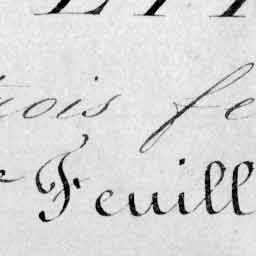 rois fe
Feuill